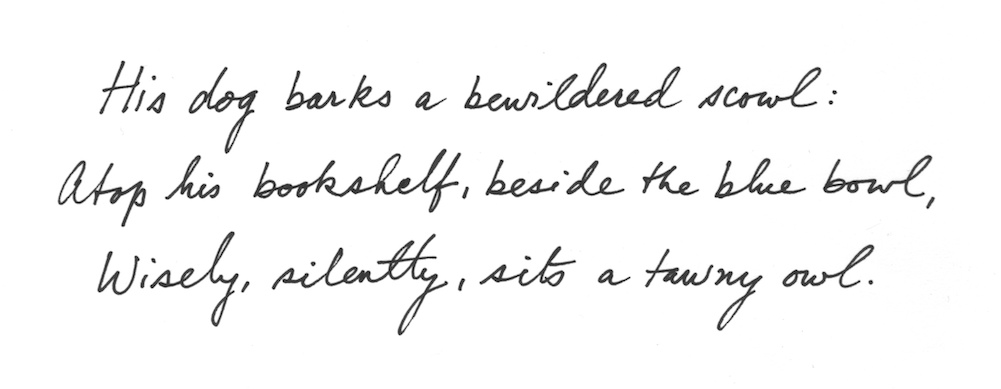 His dog barks a bewildered scowl:
Atop his bookshelf, beside the blue bowl,
Wisely, silently, sits a tawny owl.